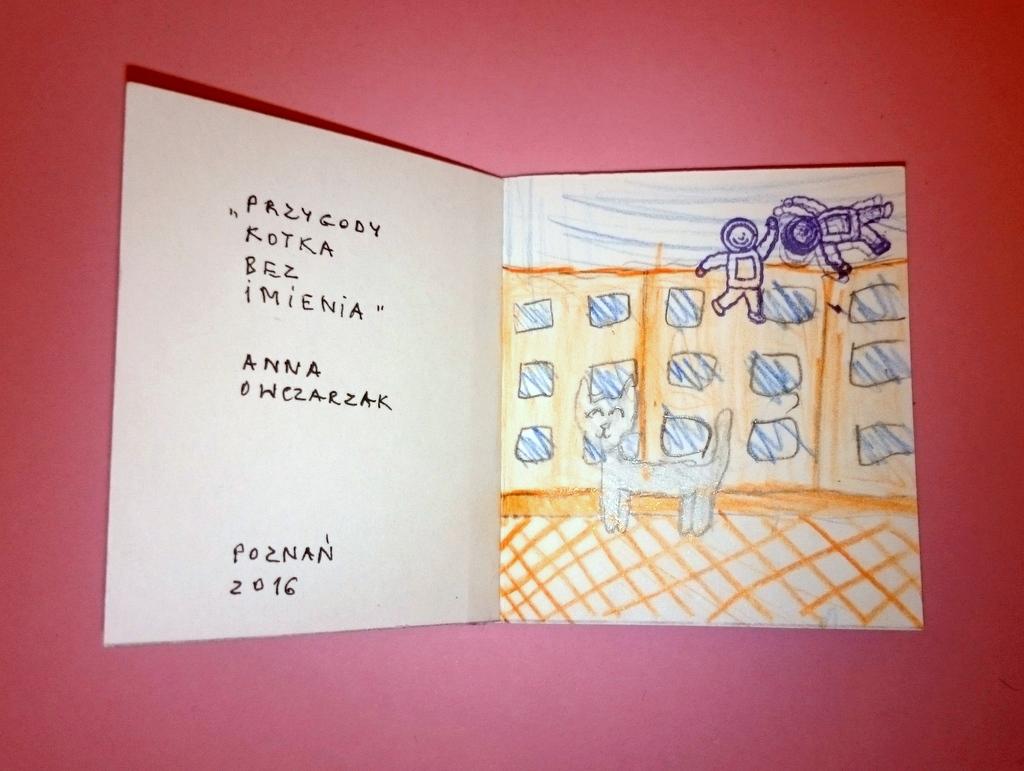 „PRZYGODY
KOTKA
BEZ
IMIENIA"
ANNA
OWCZARZAK
POZNAŃ
2016